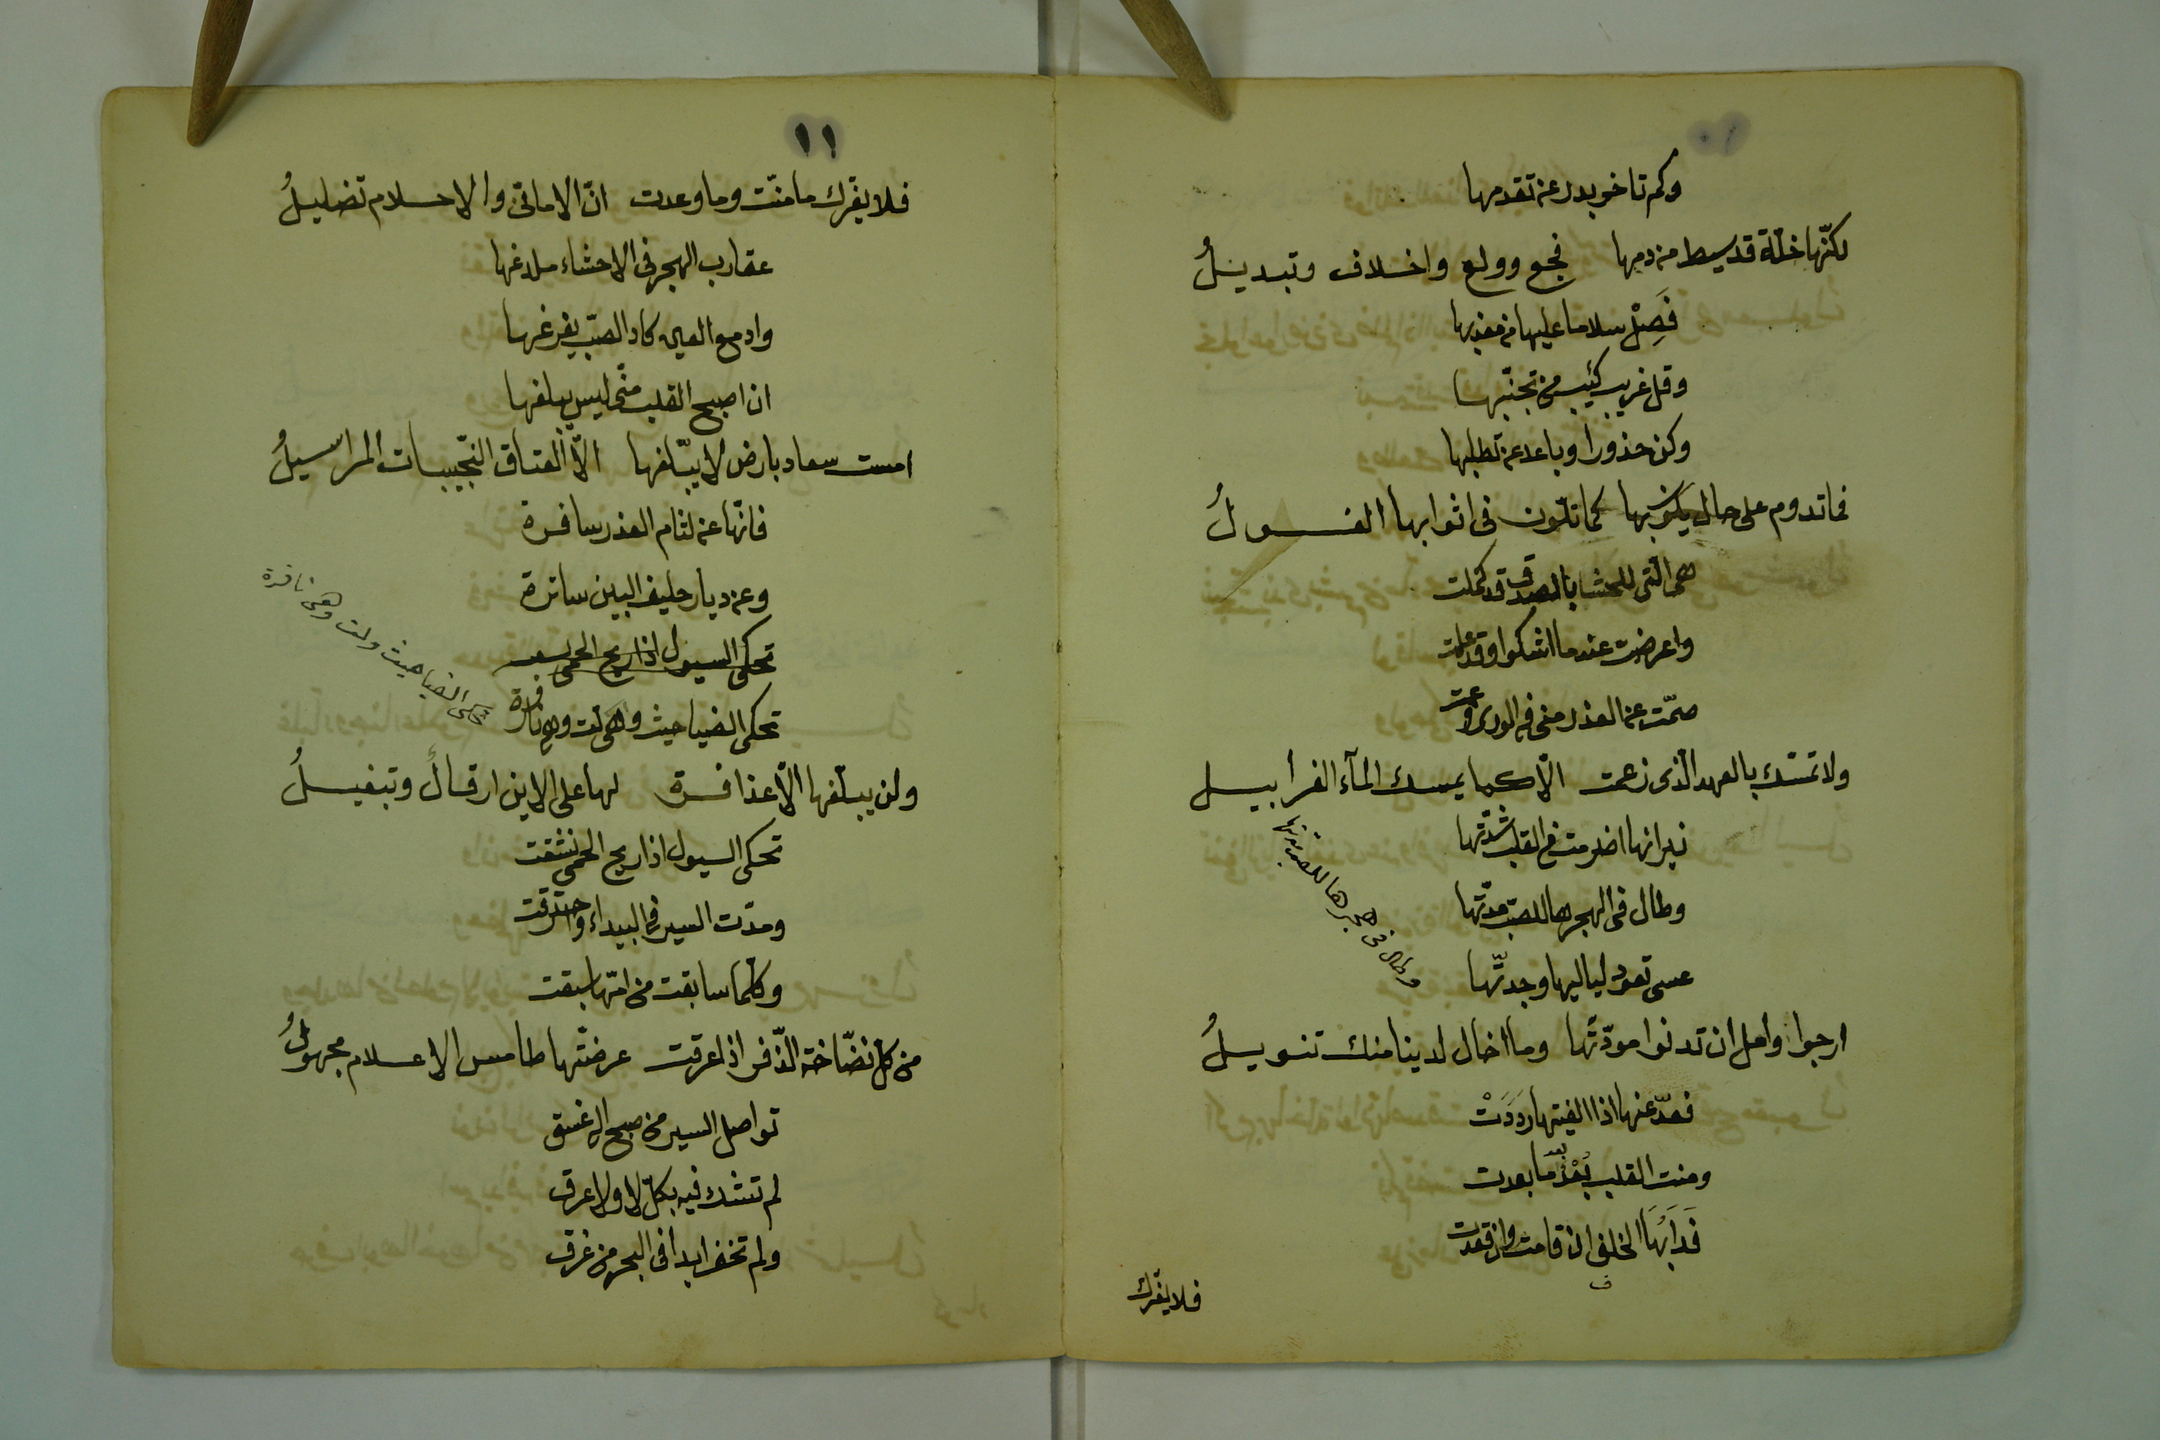 وكم تاخو بدر عن تقدمها
لكنّها خلّة قد سيط من دمها فجع وولع واخلاف وتبديلُ
فَصِلْ سلاما عليها من معذبها
وقل غريب كئيب من تجنّبها
وكن حذورا وباعد عن تطلبها
فما تدوم على حال يكون بها كما تلّون فى اثوابها الغولُ
هى الّتى للحشا بالصد قد كملت
واعرضت عندما اشكوا وقد علمت
صمّت عن العذر منى فى الورى وعمت
ولا تمسّك بالعهد الّذى زعمت الّا كما يمسك المآء الغرابيل
نيرانها اضرمت فى القلب شدّتها
وطال فى الهجرها للصب مدّتها
وطال فى هجرها للصب مدتها
عسى تعود لياليها وجدّتها
ارجوا وامل ان تدنوا مودّتها وما اخال لدينا منك تنويلُ
فعدّ عنها اذا الفيتها رَدَدَتْ
ومنت القلب بُعْدٌ ما بعدت
بعد
فَدَابُهَا الخلف ان قامت وان قعدت
ف
فلا يغّرك
١١
فلا يغّرك ما منّت وما وعدت انّ الامانّى والاحلام تضليلُ
عقارب الهجر فى الاحشاء ملدغها
وادمع العين كاد الصّب يفرغها
ان اصبح القلب منّى ليس يبلغها
امست سعاد بارض لا يبّلغها الّا العتاق النّجيبات المراسيلُ
فانّها عن لثام العذر سافرة
وعن ديار حليف البين سائرة
تحكى السيول اذا ريح الحمى
تحكى الضيا حيث وهى لت وهى نافرة
تحكى الضيا حيث ولت وهى نافرة
ولن يبلّغها الّا عذافرة لها على الاين ارقالٌ وتبغيلُ
تحكى السيول اذا ريح الحمى نشقت
ومدّت السير فى البيداء واحترقت
وكلّما سابقت من امّها سبقت
من كلّ نضّاخة الذّفرى اذا عرقت عرضتها طامس الاعلام مجهولُ
تواصل السير من صبح الى غسق
لم تشك فيه بكلّ لا ولا عرق
ولم تخف ابدا فى البحر من غرق